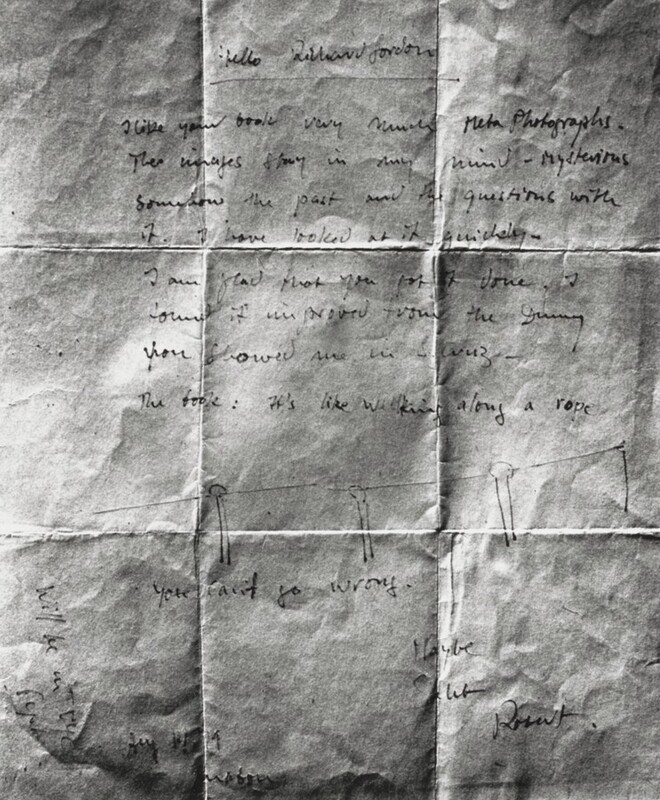 Hello Richard Gordon
I like your book very much Meta Photographs.
The images stay in my mind - mysterious
somehow the past and the questions with
it. I have looked at it quickly -
I am glad that you got it done. I
found it improved from the Dummy
you showed me in -
The book: It's like walking along a rope
you can't go wrong.
Maybe
Robert.
Will be in